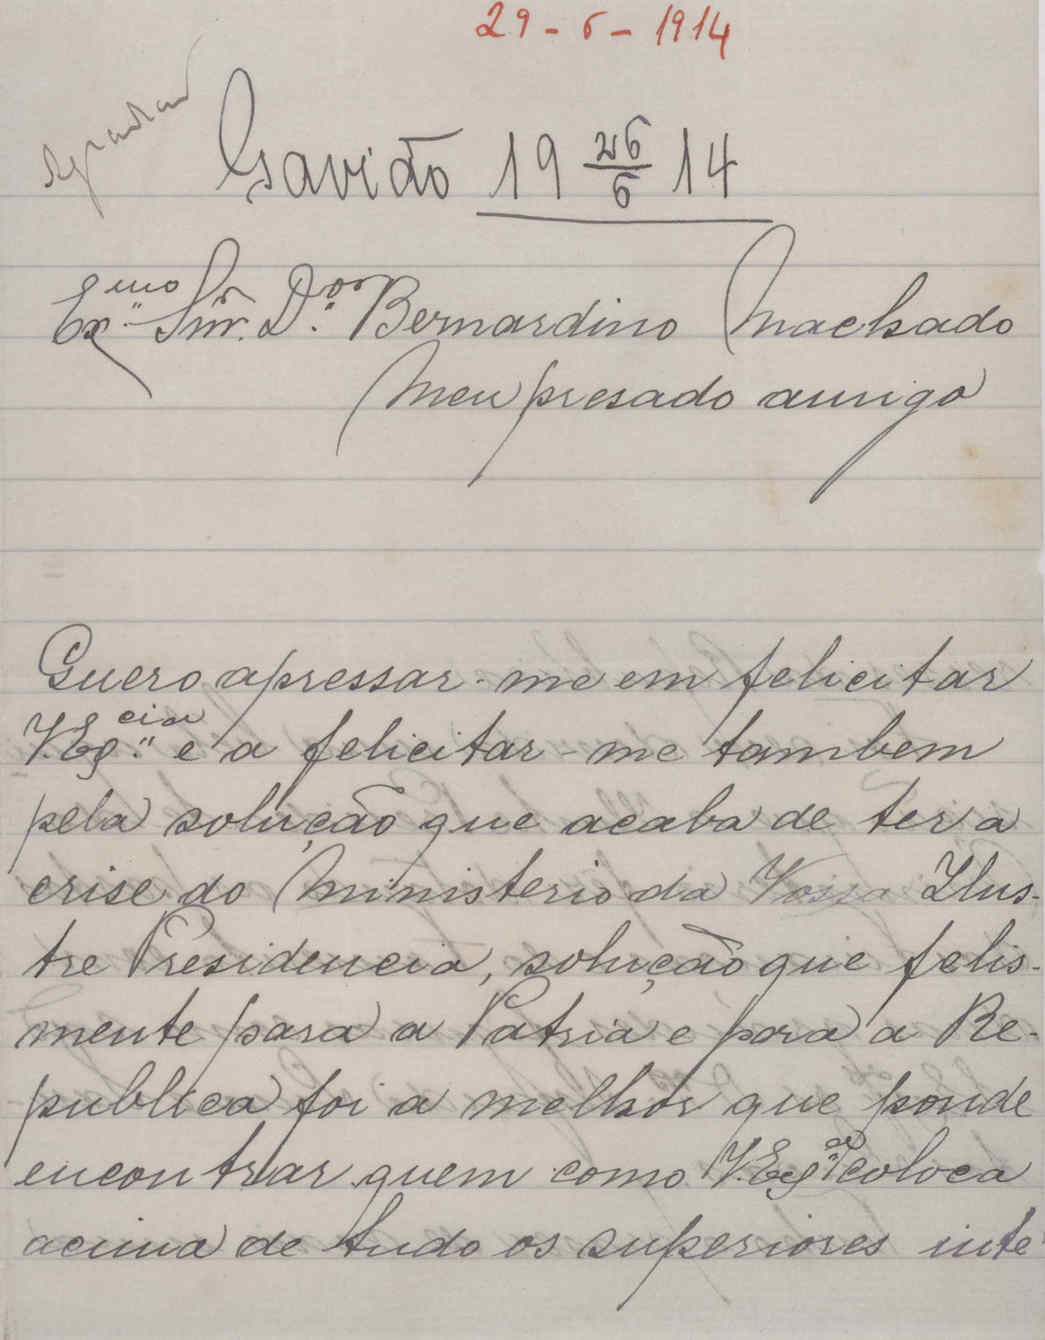 29-6-1914
Gavião 19 26/6 14
Ex.mo Snr. D.or Bernardino Machado
Meu presado amigo
Quero apressar-me em felicitar
V. Ex.cia e a felicitar-me tambem
pela solução que acaba de ter a
crise do Ministerio da Vossa Ilus-
tre Presidencia, solução que felis-
mente para a Patria e para a Re-
publica foi a melhor que poude
encontrar quem como V. Ex.cia coloca
acima de tudo os superiores inte